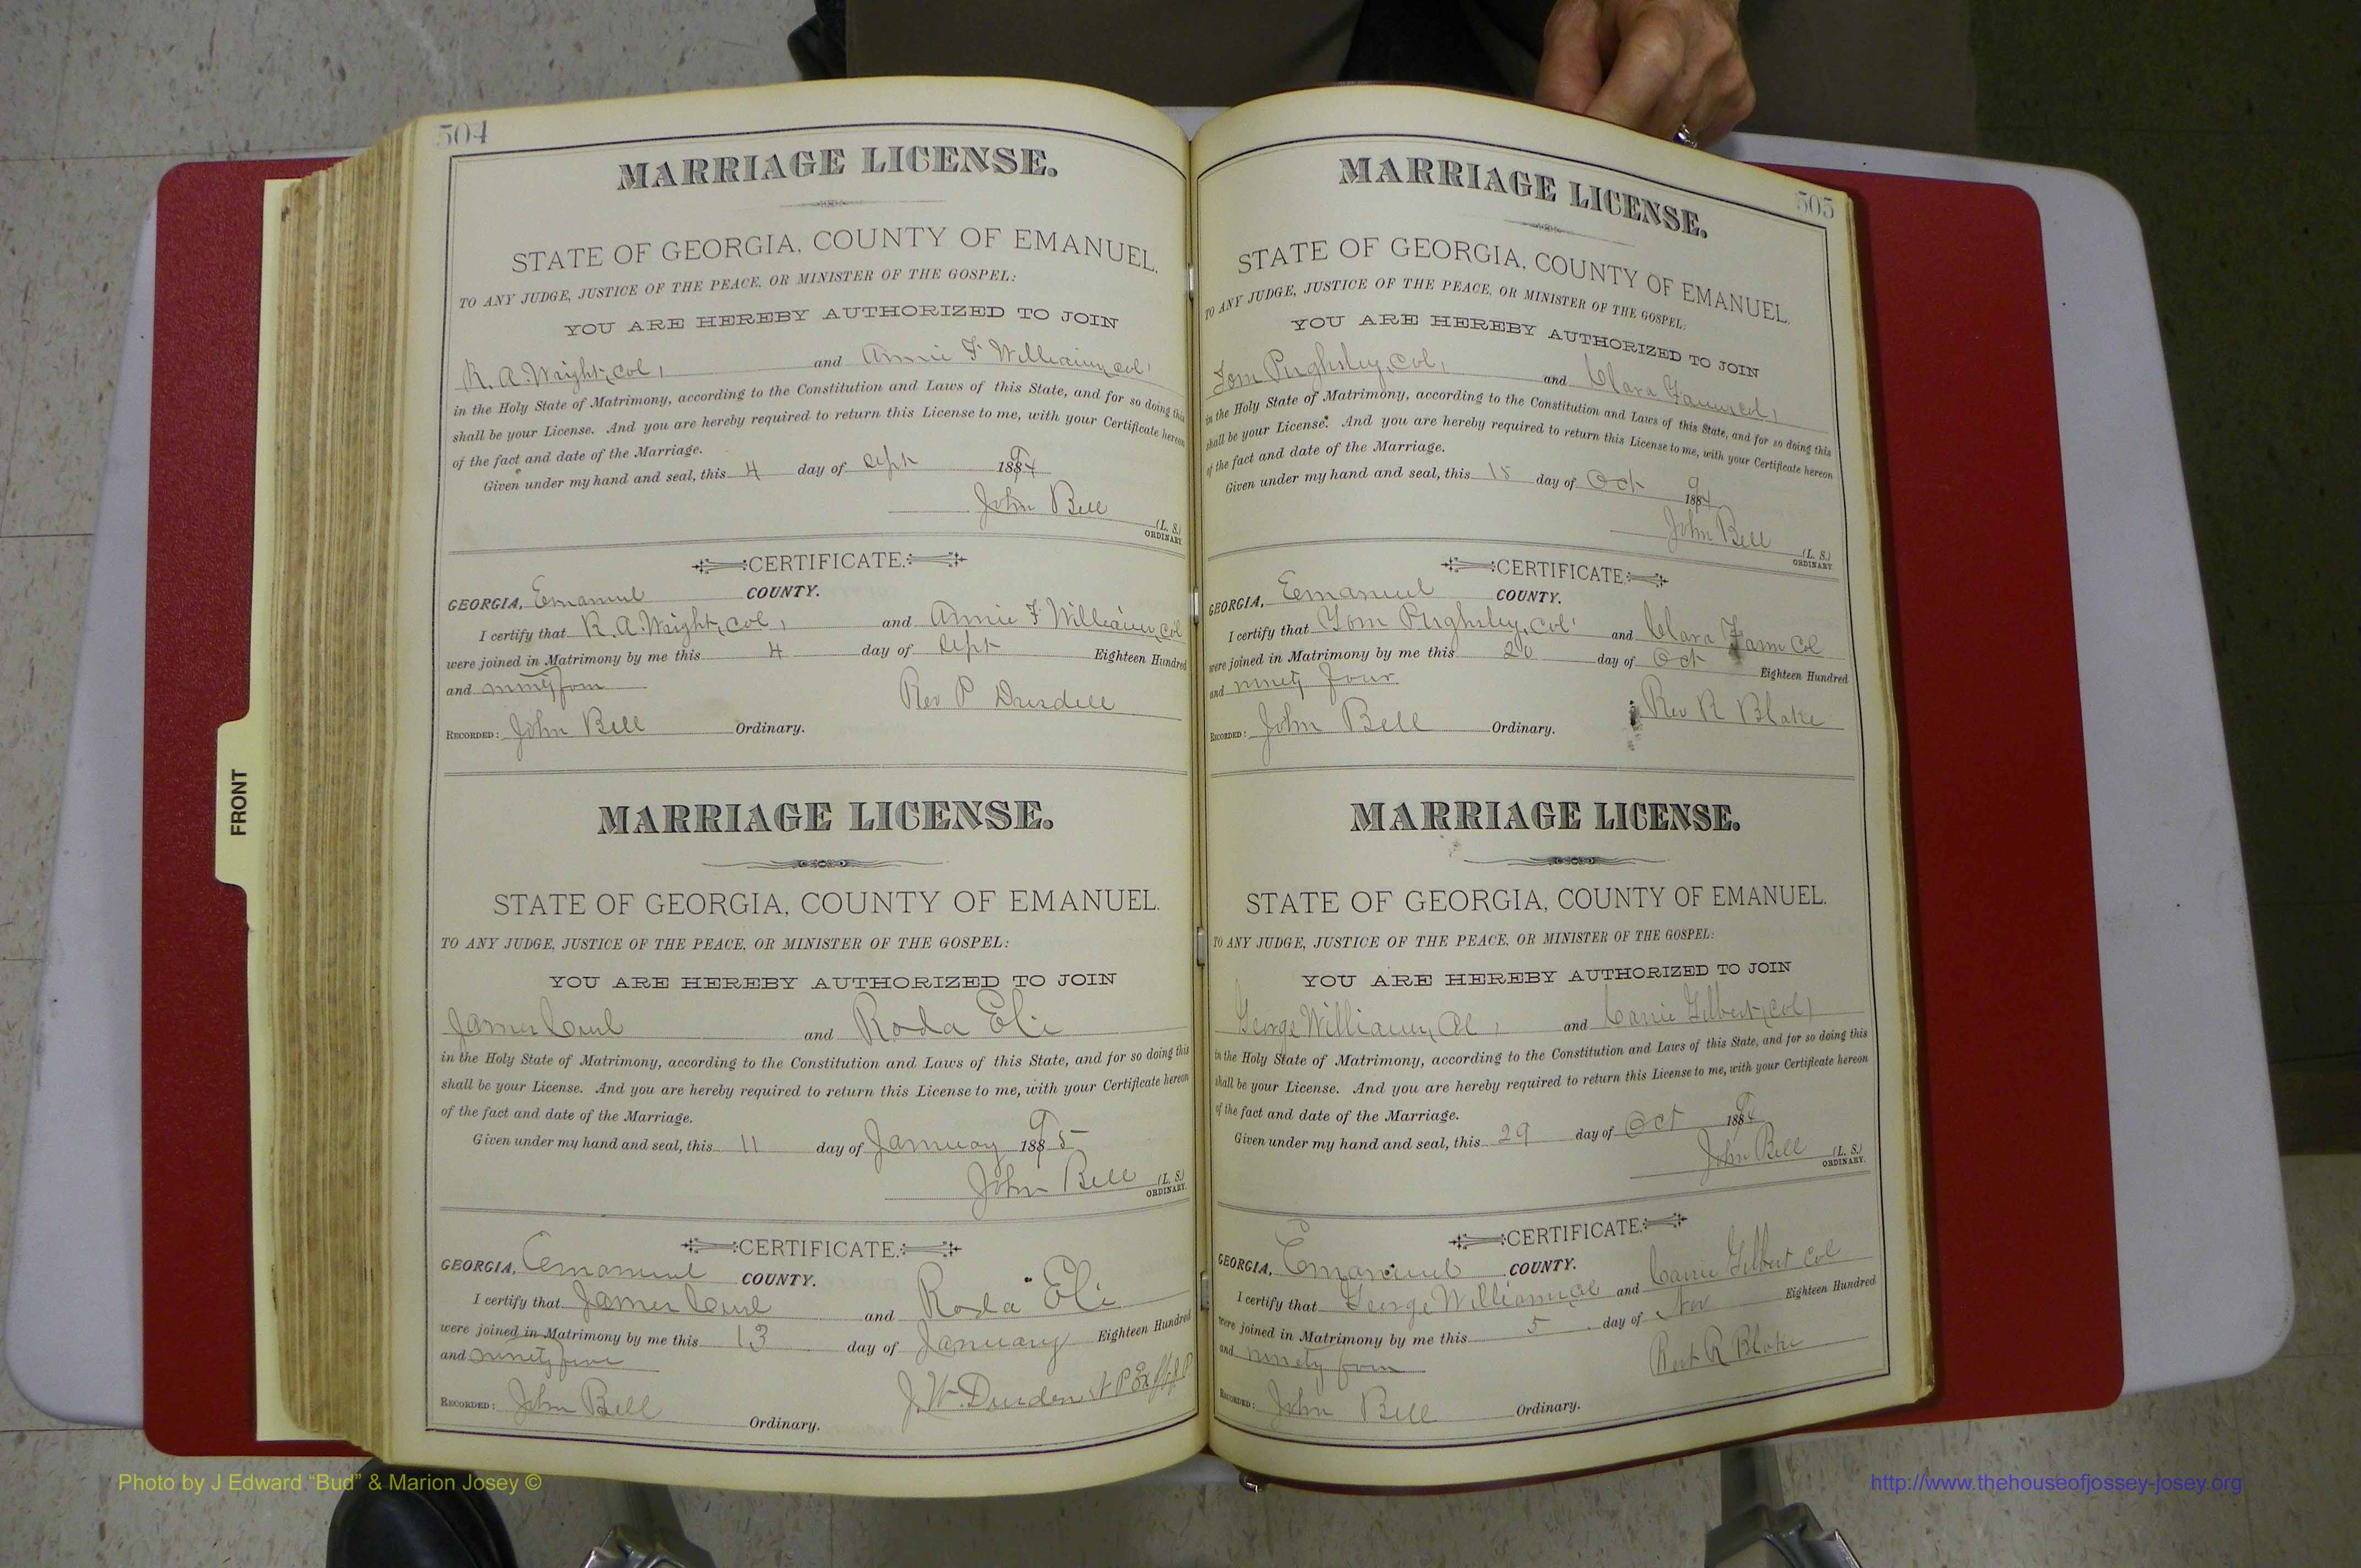 504
MARRIAGE LICENSE.
STATE OF GEORGIA, COUNTY OF EMANUEL.
TO ANY JUDGE, JUSTICE OF THE PEACE, OR MINISTER OF THE GOSPEL:
YOU ARE HEREBY AUTHORIZED TO JOIN
R. A. Wright, col, and Annie F Williams, col,
in the Holy State of Matrimony, according to the Constitution and Laws of this State, and for so doing this
shall be your License. And you are hereby required to return this License to me, with your Certificate hereon
of the fact and date of the Marriage.
Given under my hand and seal, this 4 day of 1894
John Bell (L. S.)
ORDINARY.
CERTIFICATE.
GEORGIA, Emanuel COUNTY.
I certify that R. A. Wright, col, and Annie F Williams, col
were joined in Matrimony by me this 4 day of Eighteen Hundred
and ninety four
Rev P
RECORDED: John Bell Ordinary.
MARRIAGE LICENSE.
STATE OF GEORGIA, COUNTY OF EMANUEL.
TO ANY JUDGE, JUSTICE OF THE PEACE, OR MINISTER OF THE GOSPEL:
YOU ARE HEREBY AUTHORIZED TO JOIN
James Curl and Roda Eli
in the Holy State of Matrimony, according to the Constitution and Laws of this State, and for so doing this
shall be your License. And you are hereby required to return this License to me, with your Certificate hereon
of the fact and date of the Marriage.
Given under my hand and seal, this 11 day of January 1895
John Bell (L. S.)
ORDINARY.
CERTIFICATE.
GEORGIA, Emanuel COUNTY.
I certify that James Curl and Roda Eli
were joined in Matrimony by me this 13 day of January Eighteen Hundred
and ninety five
J. W. Durden N P
RECORDED: John Bell Ordinary.
505
MARRIAGE LICENSE.
STATE OF GEORGIA, COUNTY OF EMANUEL.
TO ANY JUDGE, JUSTICE OF THE PEACE, OR MINISTER OF THE GOSPEL:
YOU ARE HEREBY AUTHORIZED TO JOIN
Tom Pughsley, Col, and Clara col,
in the Holy State of Matrimony, according to the Constitution and Laws of this State, and for so doing this
shall be your License. And you are hereby required to return this License to me, with your Certificate hereon
of the fact and date of the Marriage.
Given under my hand and seal, this 15 day of Oct 1894
John Bell (L. S.)
ORDINARY.
CERTIFICATE.
GEORGIA, Emanuel COUNTY.
I certify that Tom Pughsley, col, and Clara Col
were joined in Matrimony by me this 20 day of Oct Eighteen Hundred
and ninety four
Rev R Blake
RECORDED: John Bell Ordinary.
MARRIAGE LICENSE.
STATE OF GEORGIA, COUNTY OF EMANUEL.
TO ANY JUDGE, JUSTICE OF THE PEACE, OR MINISTER OF THE GOSPEL:
YOU ARE HEREBY AUTHORIZED TO JOIN
George Williams, Col, and Carrie Gilbert, col,
in the Holy State of Matrimony, according to the Constitution and Laws of this State, and for so doing this
shall be your License. And you are hereby required to return this License to me, with your Certificate hereon
of the fact and date of the Marriage.
Given under my hand and seal, this 29 day of Oct
John Bell (L. S.)
ORDINARY.
CERTIFICATE.
GEORGIA, Emanuel COUNTY.
I certify that George Williams, col and Carrie Gilbert col
were joined in Matrimony by me this 5 day of Nov Eighteen Hundred
and ninety four
R Blake
RECORDED: John Bell Ordinary.
FRONT
Photo by J Edward "Bud" & Marion Josey ©
http://www.thehouseofjossey-josey.org